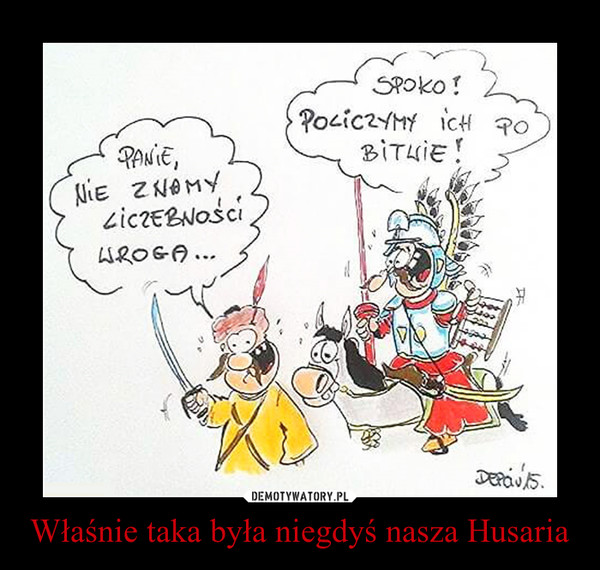 PANIE,
NIE ZNAMY
LICZEBNOŚCI
WROGA...
SPOKO!
POLICZYMY ICH PO
BITWIE!
DEPCIU'15.
DEMOTYWATORY.PL
Właśnie taka była niegdyś nasza Husaria